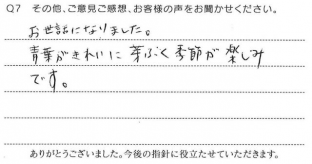 Q7 その他、ご意見ご感想、お客様の声をお聞かせください。
お世話になりました。
青葉がきれいに芽ぶく季節が楽しみ
です。
ありがとうございました。今後の指針に役立たせていただきます。